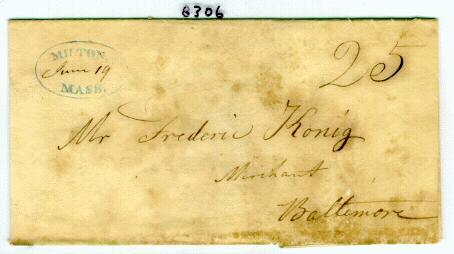 6306
MILTON
June 19
MASS.
25
Mr Frederic Konig
Merchant
Baltimore